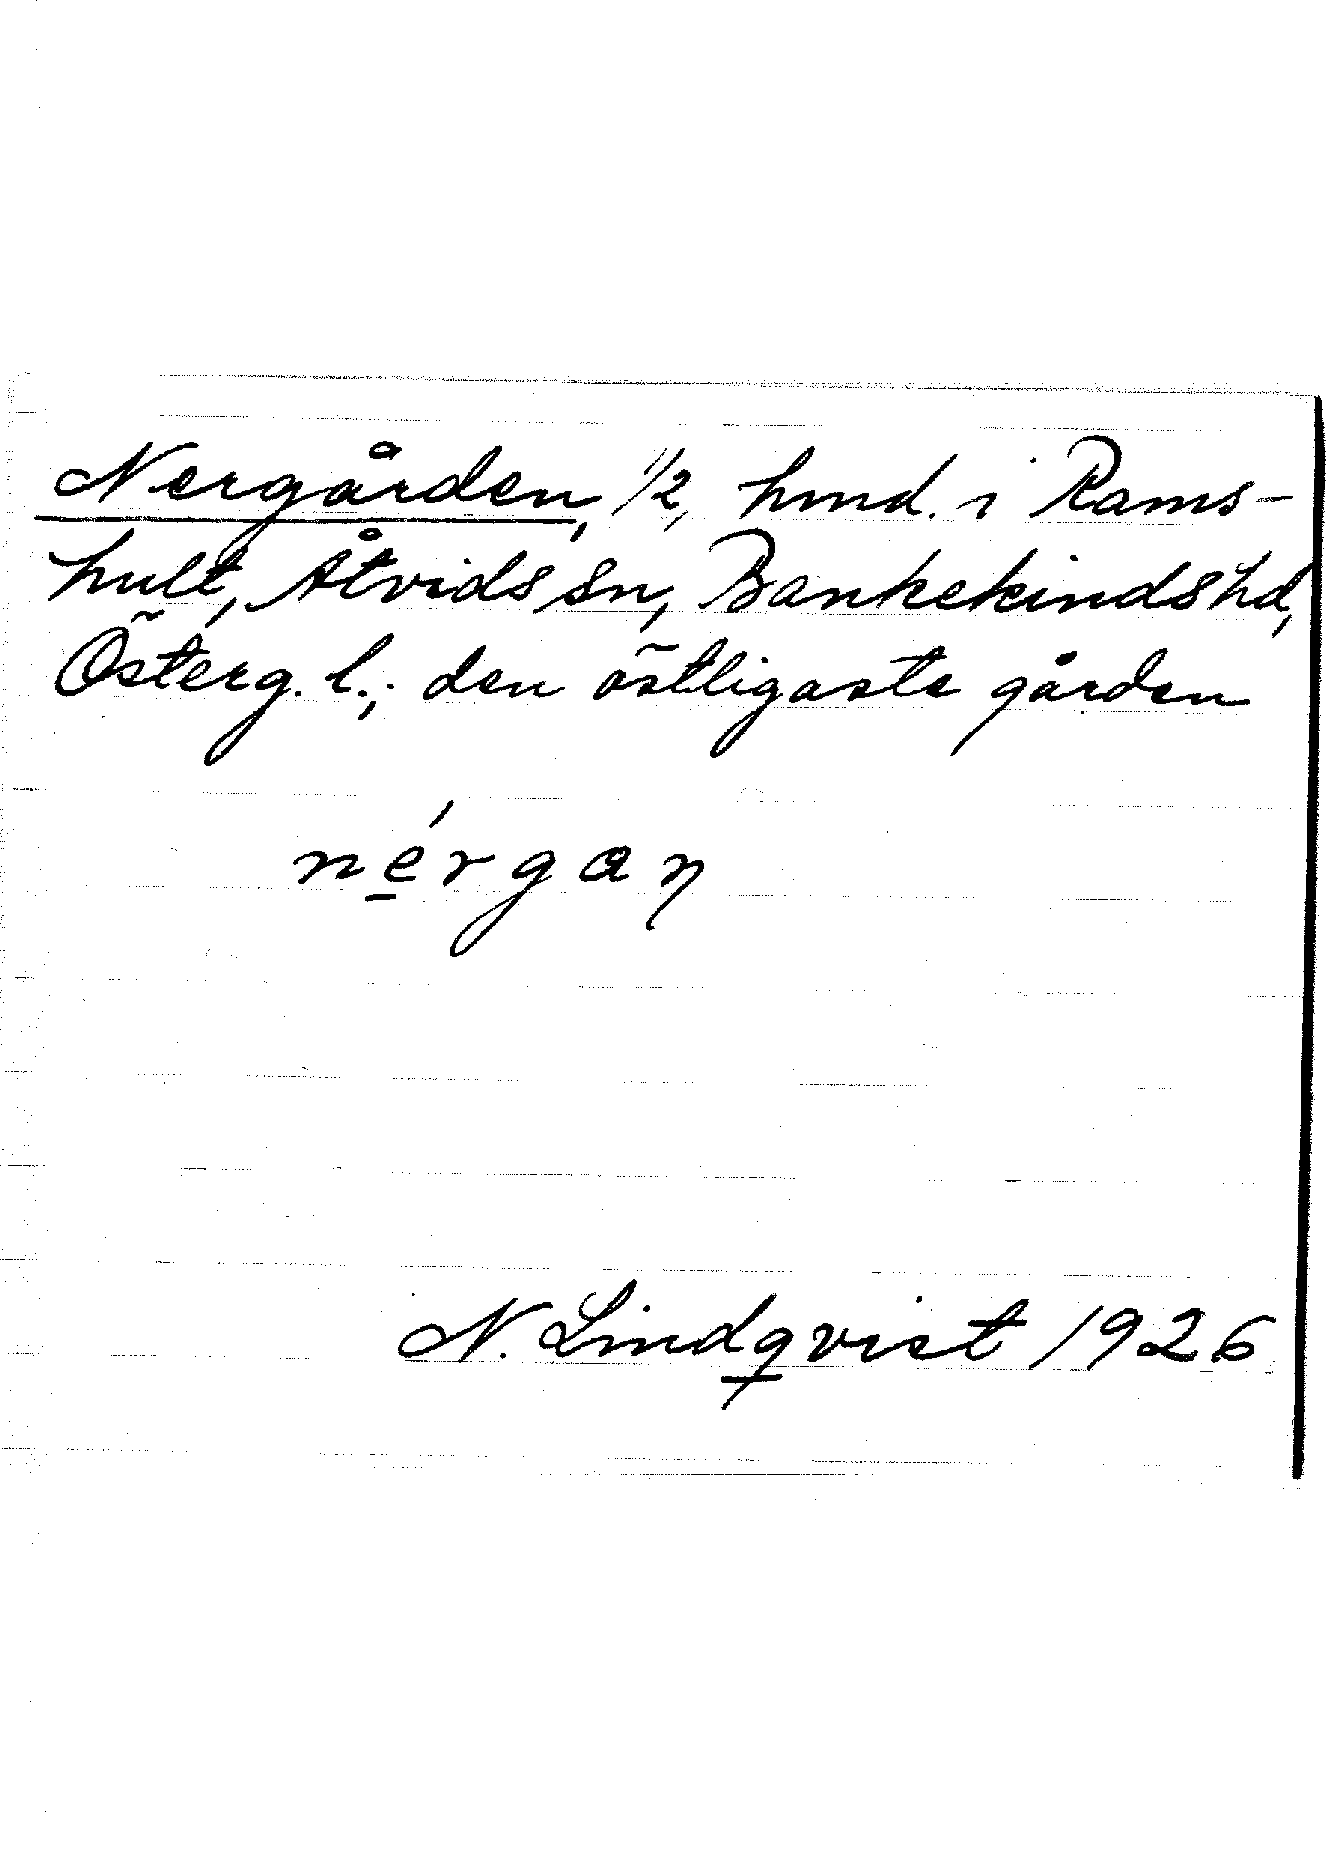 Nergården, 1/2, hmd. i Rams-
hult, Åtvids sn, Bankekinds hd,
Österg. l.; den östligaste gården
né̱rgaꞃ
N. Lindqvist 1926